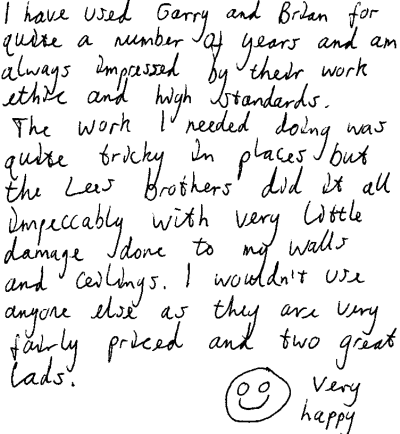 I have used Garry and Brian for
quite a number of years and am
always impressed by their work
ethic and high standards.
The work I needed doing was
quite tricky in places but
the Lees Brothers did it all
impeccably with very little
damage done to my walls
and ceilings. I wouldn't use
anyone else as they are very
fairly priced and two great
lads.
very
happy